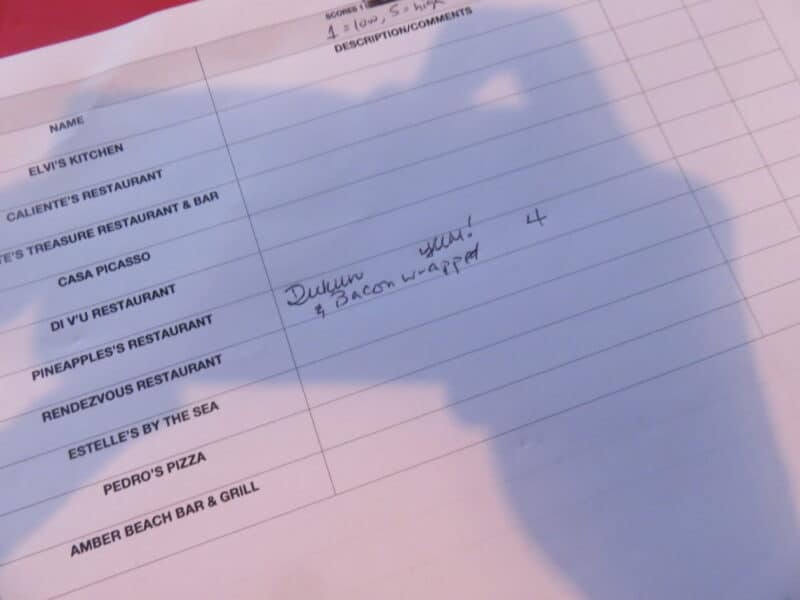 SCORES 1
1 = low, 5 = high
NAME
DESCRIPTION/COMMENTS
ELVI'S KITCHEN
CALIENTE'S RESTAURANT
TE'S TREASURE RESTAURANT & BAR
CASA PICASSO
DI V'U RESTAURANT
PINEAPPLES'S RESTAURANT
yum! 4
& Bacon wrapped
RENDEZVOUS RESTAURANT
ESTELLE'S BY THE SEA
PEDRO'S PIZZA
AMBER BEACH BAR & GRILL